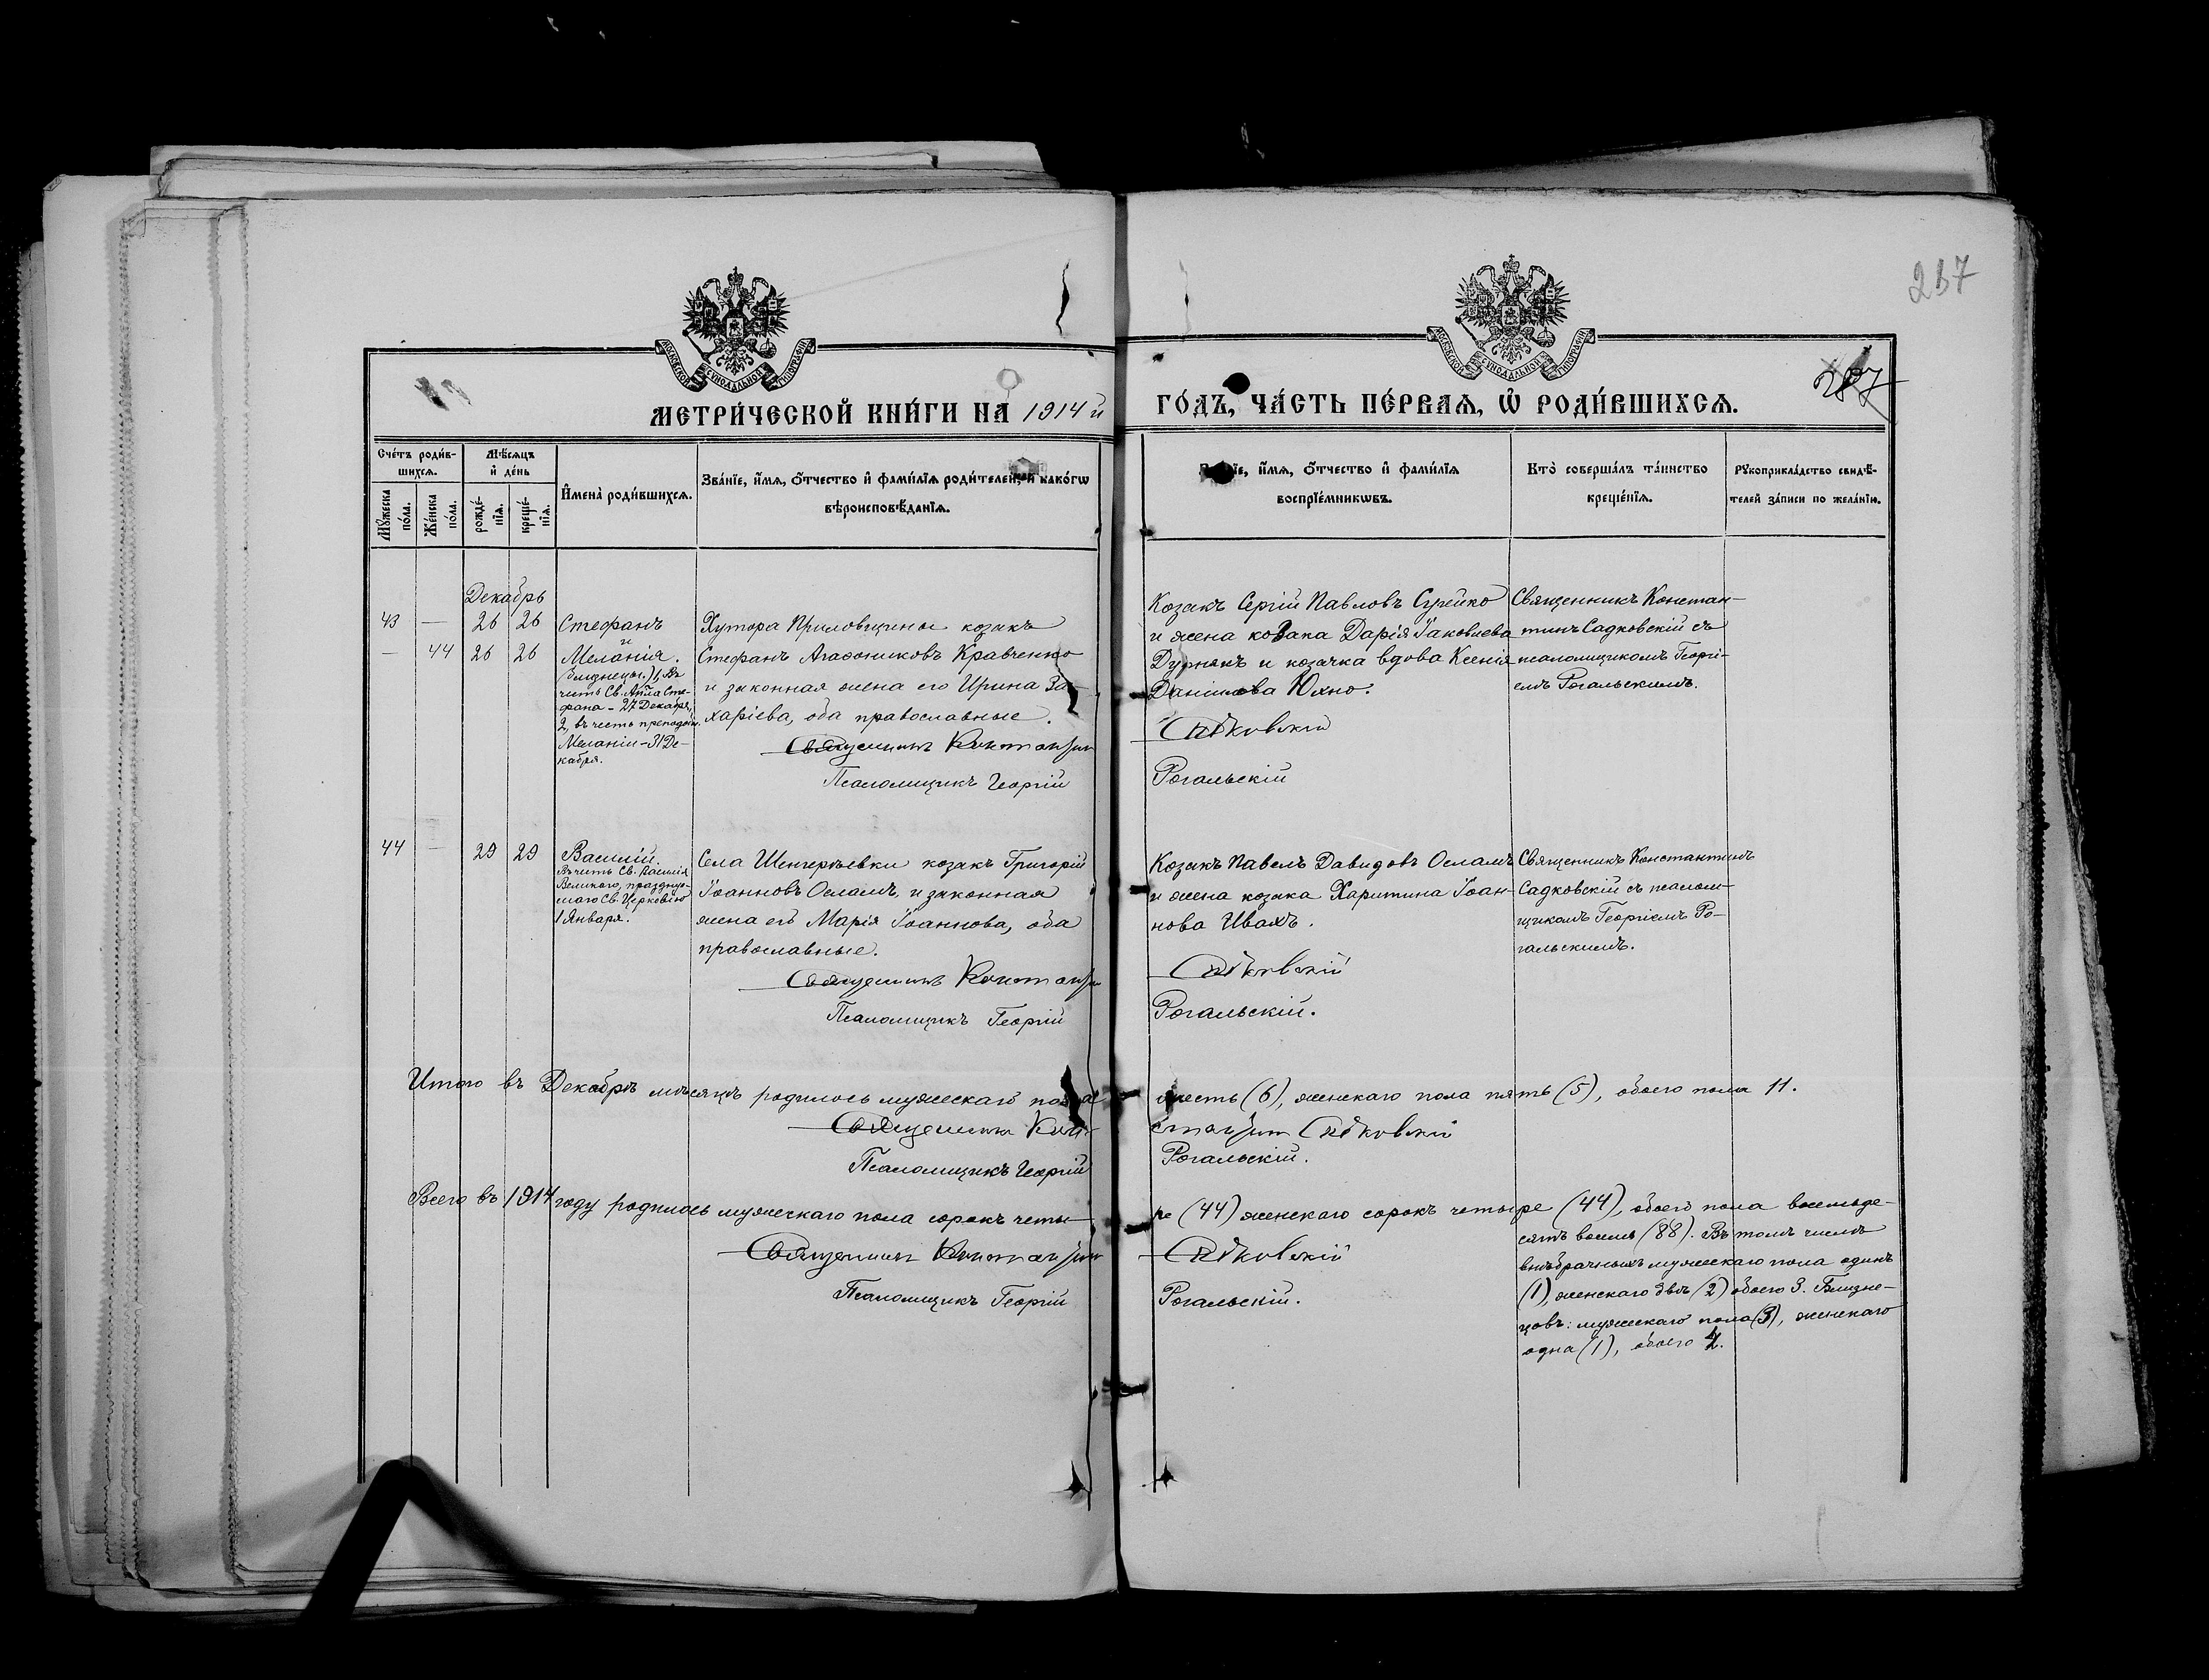 237
МОСКОВСКОЙ СУНОДАЛЬНОЙ ТИПОГРАФІИ
МОСКОВСКОЙ СУНОДАЛЬНОЙ ТИПОГРАФІИ
МЕТРИ́ЧЕСКОЙ КНИ́ГИ НА 1914 й
ГО́ДЪ, ЧА́СТЬ ПЕ́РВАЯ, Ѡ РОДИ́ВШИХСЯ.
Сче́тъ роди́в-
шихся.
Мꙋ́жеска
по́ла.
Же́нска
по́ла.
Мѣ́сяцъ
и҆ де́нь
рожде́-
нїѧ.
креще́-
нїѧ.
И҆мена̀ роди́вшихсѧ.
Зва́нїе, и҆́мѧ, ѻ҆́тчество и҆ фами́лїѧ роди́телей, и҆ како́гѡ
вѣроисповѣ́данїѧ.
їе, и҆́мѧ, ѻ҆́тчество и҆ фами́лїѧ
воспрїе́мникѡвъ.
Кто̀ соверша́лъ та́инство
креще́нїѧ.
Рꙋкоприкла́дство свидѣ́-
телей за́писи по жела́нїю.
Декабрь
43 — 26 26 Стефанъ
и
— 44 26 26 Меланія.
(близнецы.) 1, Въ
честь Св. Ап̃ла Сте-
фана - 27 Декабря,
2, въ честь преподобн.
Меланіи - 31 Де-
кабря.
Хутора Приловщины козакъ
Стефанъ Агаѳониковъ Кравченко
и законная жена его Ирина За-
харіева, оба православные.
Священникъ Константин
Псаломщикъ Георгій
Козакъ Сергій Павловъ Сурейко
и жена козака Дарія Іаковлева
Дурнякъ и козачка вдова Ксенія
Даніилова Юхно.
Садковскій
Рогальскій
Священникъ Констан-
тинъ Садковскій съ
псаломщикомъ Георгі-
емъ Рогальскимъ.
44 — 29 29 Василій.
Въ честь Св. Василія
Великого, праздную-
маго Св. Церковію
1 Января.
Села Шенгеріевки козакъ Григорій
Іоанновъ Осламъ, и законная
жена его Марія Іоаннова, оба
православные.
Священникъ Константин
Псаломщикъ Георгій
Козакъ Павелъ Давидовъ Осламъ
и жена козака Харитина Іоан-
нова Ивахъ.
Садковскій
Рогальскій.
Священникъ Константинъ
Садковскій съ псалом-
щикомъ Георгіемъ Ро-
гальскимъ.
Итого въ Декабрѣ мѣсяцѣ родилось мужескаго пола шесть (6), женскаго пола пять (5), обоего пола 11.
Священникъ Константин Садковскій
Псаломщикъ Георгій Рогальскій.
Всего въ 1914 году родилось мужескаго пола сорокъ четыре (44) женскаго сорокъ четыре (44), обоего пола восемьде-
сятъ восемь (88). Въ томъ числѣ
внѣбрачныхъ мужескаго пола одинъ
(1), женскаго двѣ (2) обоего 3. Близне-
цовъ: мужескаго пола (3), женскаго
одна (1), обоего 4.
Священникъ Константин Садковскій
Псаломщикъ Георгій Рогальскій.